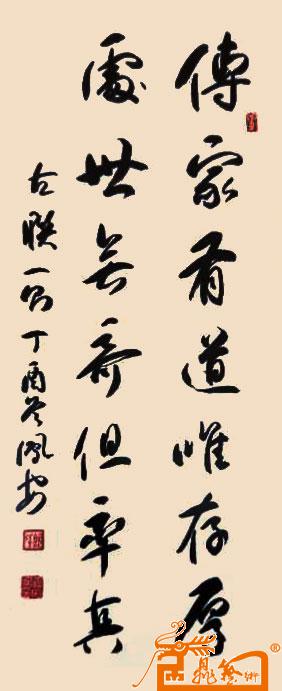 傳家有道唯存厚
處世無奇但率真
古联一句丁酉冬